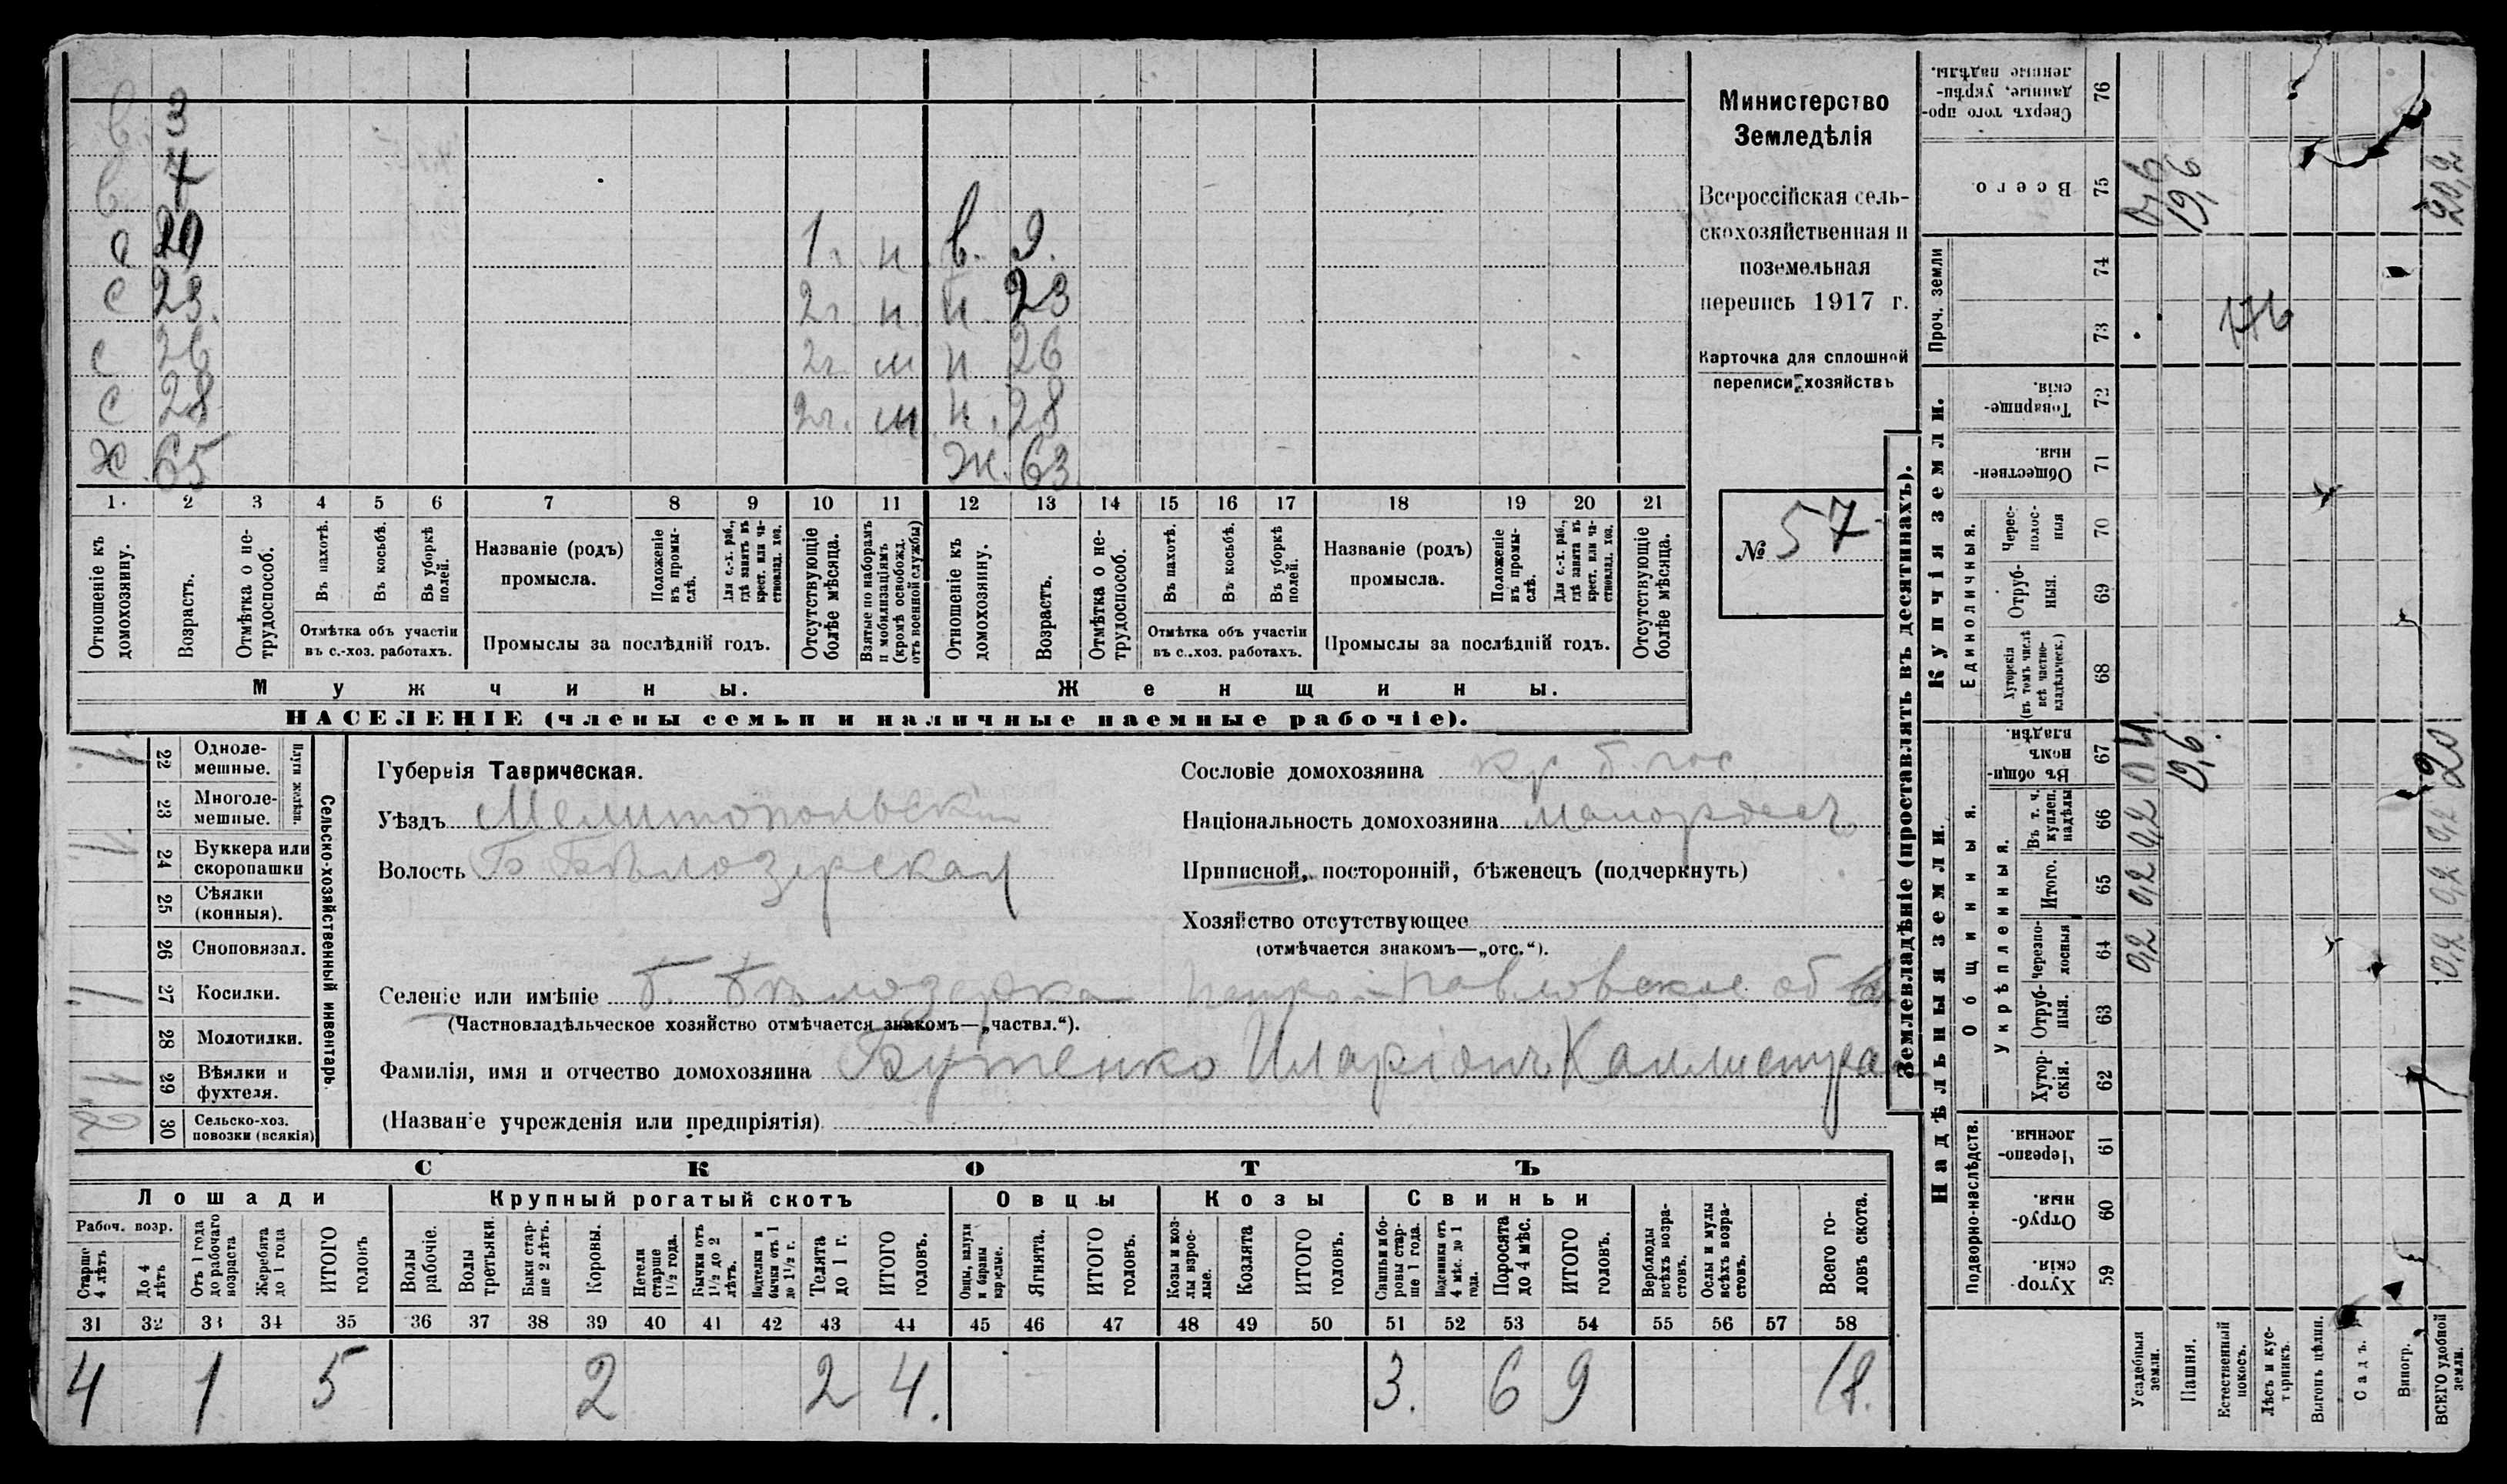 в. 3
в. 7
с 20 1 г. н в. 9.
с 23. 2г. н. н. 23
с 26 2г. м н 26
с 28 2г. м н. 28
Ж. 65 Ж. 63
1 2 3 4 5 6 7 8 9 10 11 12 13 14 15 16 17 18 19 20 21
Отношеніе къ домохозяину.
Возрастъ.
Отмѣтка о нетрудоспособ.
Въ пахотѣ.
Въ косьбѣ.
Въ уборкѣ полей.
Отмѣтка объ участіи
въ с.-хоз. работахъ.
Названіе (родъ)
промысла.
Положеніе въ промыслѣ.
Для с.-х. раб., гдѣ занятъ въ крест. или частновлад. хоз.
Промыслы за послѣдній годъ.
Отсутствующіе болѣе мѣсяца.
Взятые по наборамъ и мобилизаціямъ (кромѣ освобожд. отъ военной службы)
Отношеніе къ домохозяину.
Возрастъ.
Отмѣтка о нетрудоспособ.
Въ пахотѣ.
Въ косьбѣ.
Въ уборкѣ полей.
Отмѣтка объ участіи
въ с..хоз. работахъ.
Названіе (родъ)
промысла.
Положеніе въ промыслѣ.
Для с.-х. раб., гдѣ занята въ крест. или частновлад. хоз.
Промыслы за послѣдній годъ.
Отсутствующіе болѣе мѣсяца.
Мужчины. Женщины.
НАСЕЛЕНІЕ (члены семьи и наличные наемные рабочіе).
Министерство
Земледѣлія
Всероссійская сель-
скохозяйственная и
поземельная
перепись 1917 г.
Карточка для сплошной
переписи хозяйствъ
№ 57
1. 22 Одноле-
мешные.
23 Многоле-
мешные.
Плуги желѣзн.
1. 24 Буккера или
скоропашки
25 Сѣялки
(конныя).
26 Сноповязал.
1. 27 Косилки.
28 Молотилки.
1. 29 Вѣялки и
фухтеля.
2 30 Сельско-хоз.
повозки (всякія)
Сельско-хозяйственный инвентарь.
Губернія Таврическая.
Уѣздъ Мелитопольский
Волость Б Бѣлозерская
Сословіе домохозяина кр. б. гос
Національность домохозяина малоросъ
Приписной, посторонній, бѣженецъ (подчеркнуть)
Хозяйство отсутствующее
(отмѣчается знакомъ—„отс.“).
Селеніе или имѣніе Б. Бѣлозерка Петро-Павловское об
(Частновладѣльческое хозяйство отмѣчается знакомъ—„частвл.“).
Фамилія, имя и отчество домохозяина Бутенко Иларіонъ Каллистра
(Названіе учрежденія или предпріятія)
СКОТЪ
Лошади Крупный рогатый скотъ Овцы Козы Свиньи
Рабоч. возр.
Старше 4 лѣтъ
До 4 лѣтъ
Отъ 1 года до рабочаго возраста
Жеребята до 1 года
ИТОГО головъ
Волы рабочіе.
Волы третьяки.
Быки старше 2 лѣтъ.
Коровы.
Нетели старше 1½ года.
Бычки отъ 1½ до 2 лѣтъ.
Подтелки и бычки отъ 1 до 1½ г.
Телята до 1 г.
ИТОГО головъ.
Овцы, валухи и бараны взрослые.
Ягнята.
ИТОГО головъ.
Козы и козлы взрослые.
Козлята
ИТОГО головъ.
Свиньи и боровы старше 1 года.
Подсвинки отъ 4 мѣс. до 1 года.
Поросята до 4 мѣс.
ИТОГО головъ.
Верблюды всѣхъ возрастовъ.
Ослы и мулы всѣхъ возрастовъ.
Всего головъ скота.
31 32 33 34 35 36 37 38 39 40 41 42 43 44 45 46 47 48 49 50 51 52 53 54 55 56 57 58
4 1 5 2 2 4. 3. 6 9 18.
Землевладѣніе (проставлять въ десятинахъ).
Купчія земли.
Надѣльныя земли.
Сверхъ того проданные, укрѣпленные надѣлы. 76
Всего 75 0,6 19,6 20,2
Проч. земли 74
73 176
Товарищескія. 72
Общественныя. 71
Единоличныя.
Чересполосныя 70
Отрубныя. 69
Хуторскія (въ томъ числѣ всѣ частновладѣльческ.) 68
Общинныя.
Въ общинномъ владѣн. 67 0,4 19,6. 20
Укрѣпленныя.
Въ т. ч. куплен. надѣлы 66 0,2 0,2
Итого. 65 0,2 0,2
Черезполосныя 64 0,2 0,2
Отрубныя. 63
Хуторскія. 62
Подворно-наслѣдств.
Черезполосныя. 61
Отрубныя. 60
Хуторскія. 59
Усадебныя земли.
Пашня.
Естественный покосъ.
Лѣсъ и кустарникъ.
Выгонъ цѣлин.
Садъ.
Виногр.
ВСЕГО удобной земли.